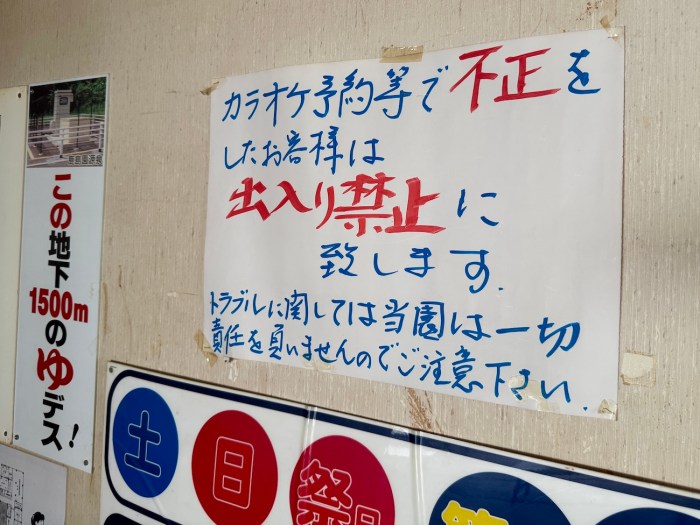 カラオケ予約等で不正を
したお客様は
出入り禁止に
致します.
トラブルに関しては当園は一切
責任を負いませんのでご注意下さい.
この地下
1500m
のゆデス!
土 日 祭日